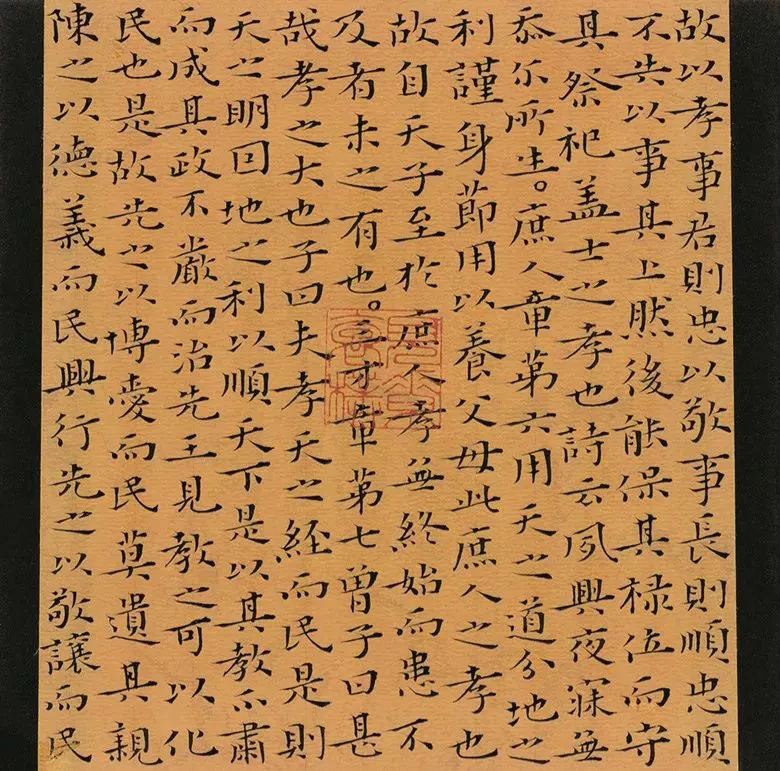 故以孝事君則忠以敬事長則順忠順
不失以事其上然後能保其祿位而守
其祭祀盖士之孝也詩云夙興夜寐無
忝尒所生。庶人章第六用天之道分地之
利謹身節用以養父母此庶人之孝也
故自天子至於庶人孝無終始而患不
及者未之有也。三才章第七曾子曰甚
哉孝之大也子曰夫孝天之経而民是則
天之明因地之利以順天下是以其教不肅
而成其政不嚴而治先王見教之可以化
民也是故先之以博愛而民莫遺其親
陳之以德義而民興行先之以敬讓而民